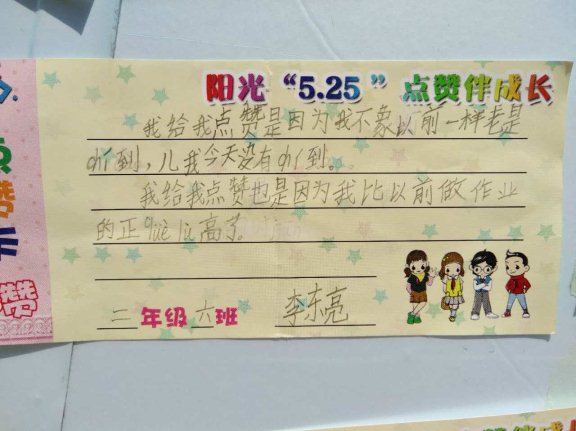 阳光“5.25”点赞伴成长
我给我点赞是因为我不象以前一样老是
chí到，儿我今天没有chí到。
我给我点赞也是因为我比以前做作业
的正què lǜ高了。
二年级六班 李东亮
赞
卡
赞